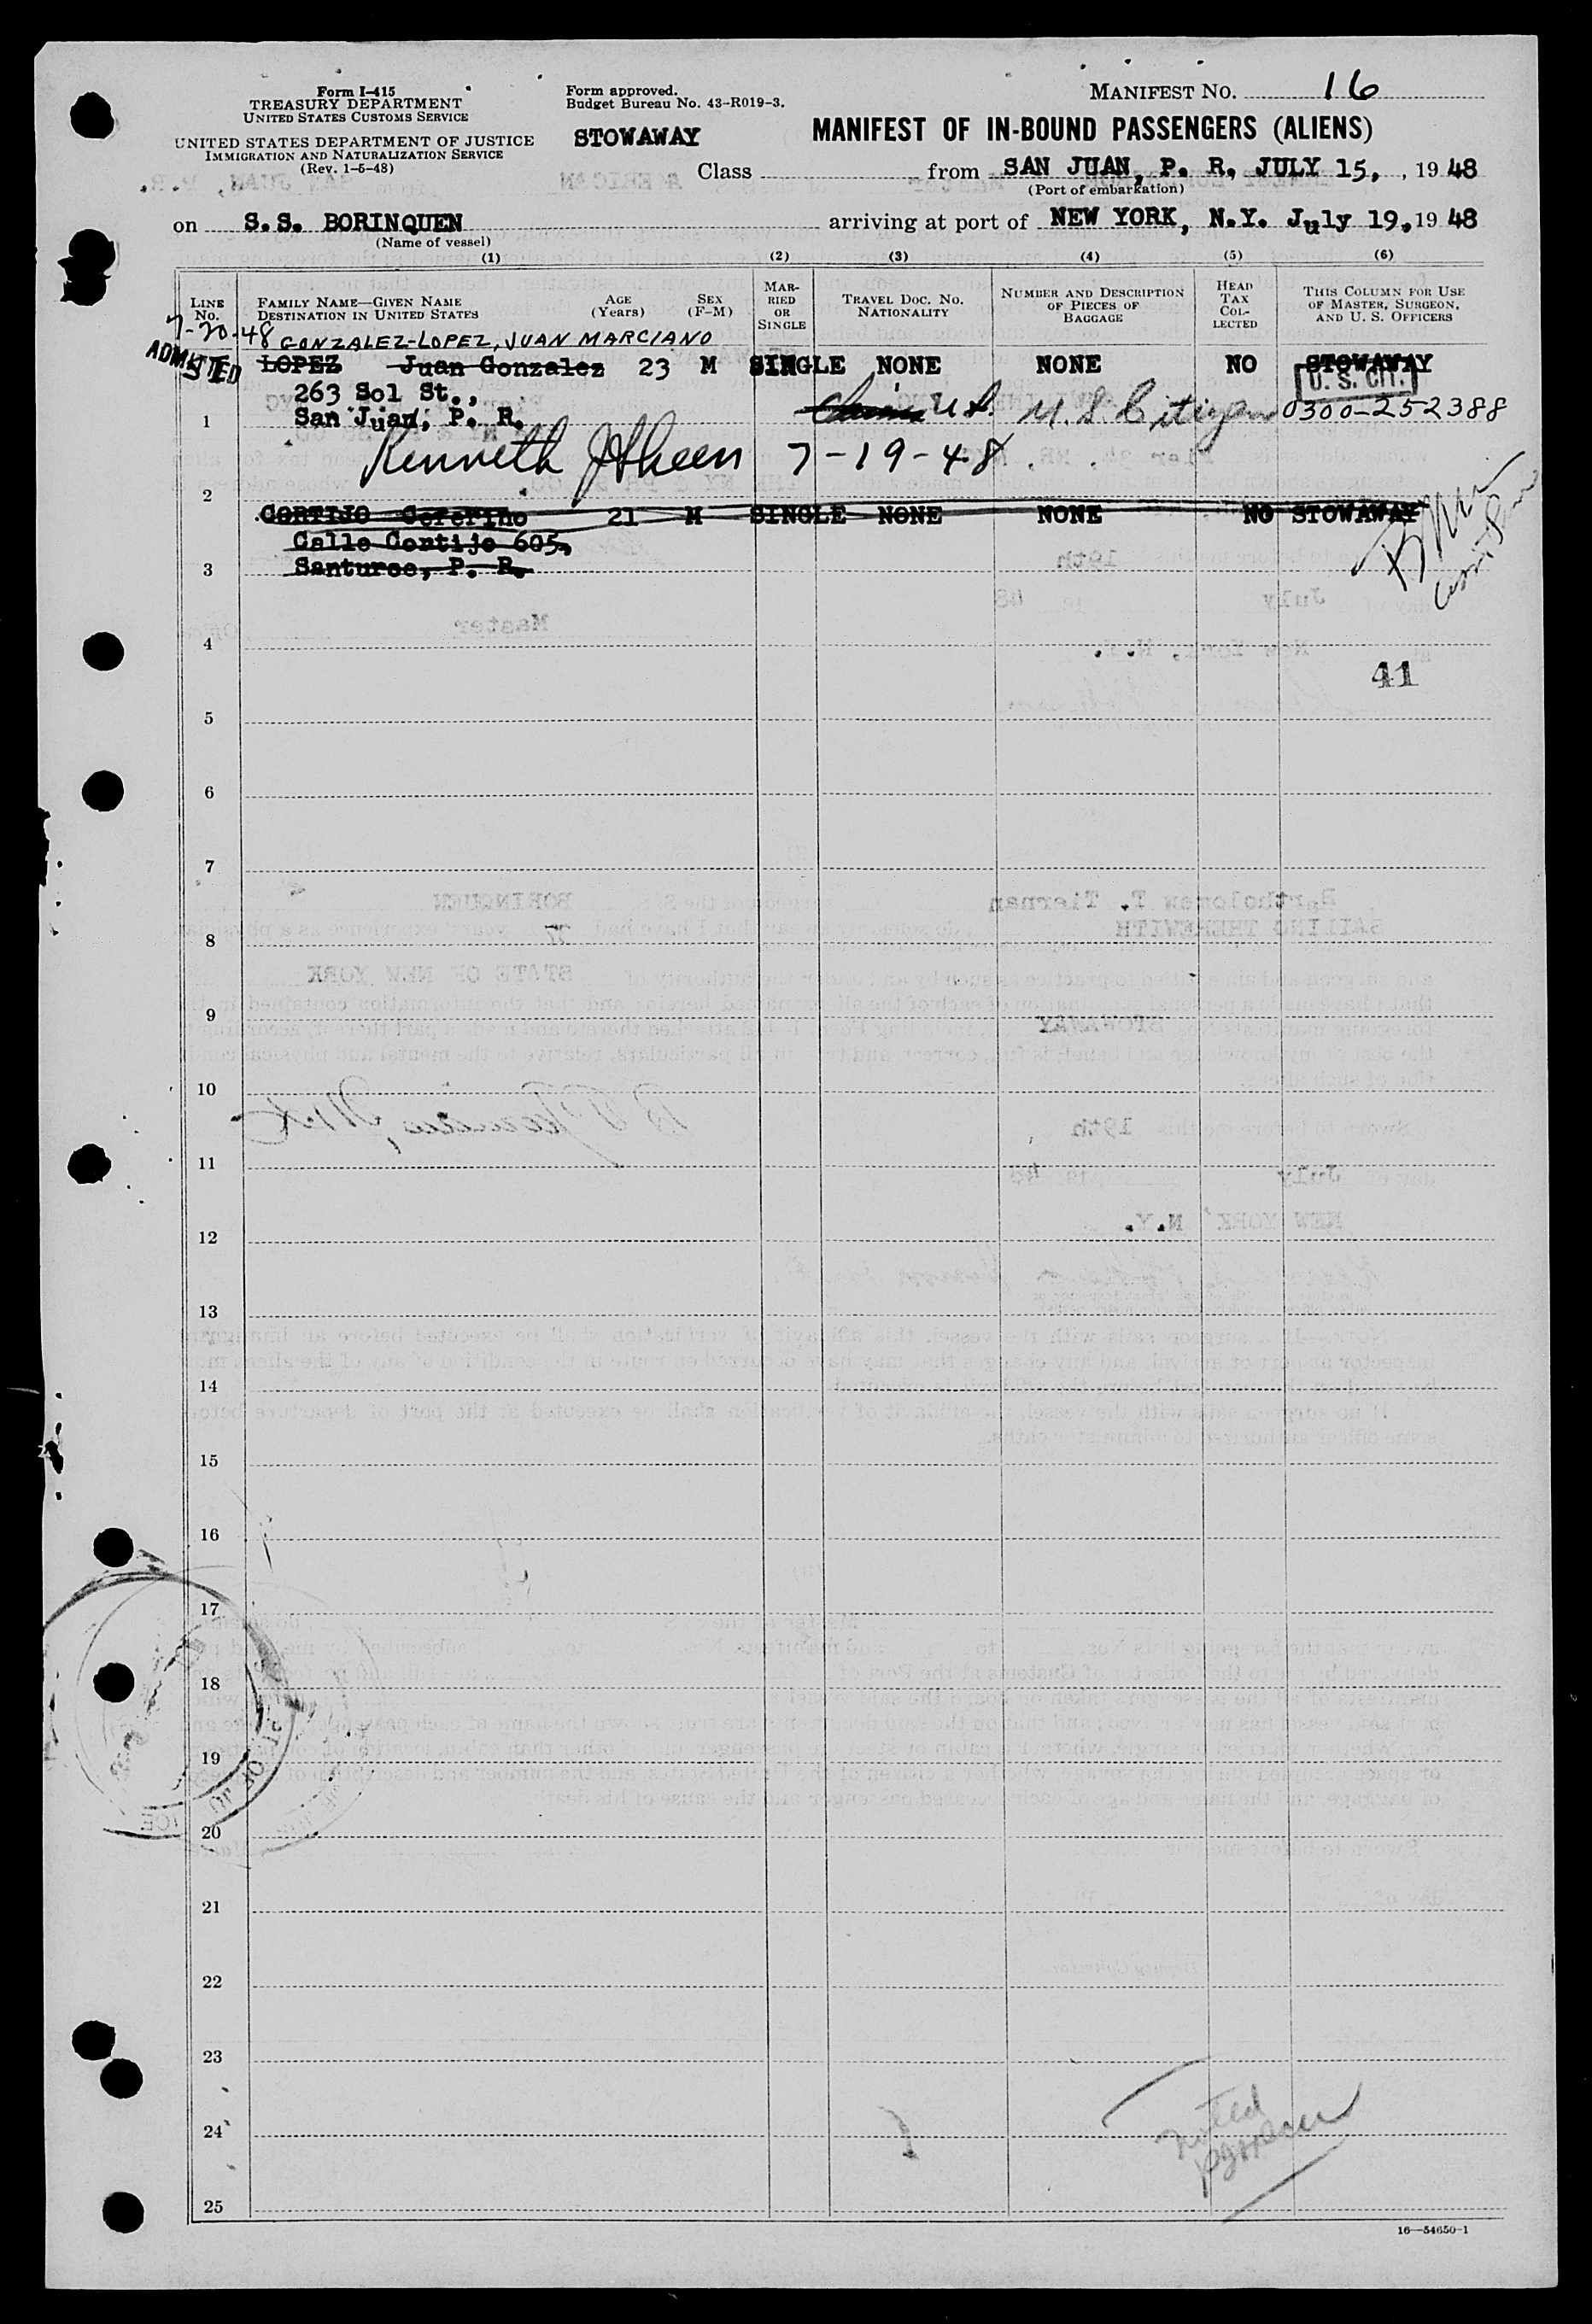 Form I-415
TREASURY DEPARTMENT
UNITED STATES CUSTOMS SERVICE
UNITED STATES DEPARTMENT OF JUSTICE
IMMIGRATION AND NATURALIZATION SERVICE
(Rev. 1-5-48)
Form approved.
Budget Bureau No. 43-R019-3.
STOWAWAY
MANIFEST NO. 16
MANIFEST OF IN-BOUND PASSENGERS (ALIENS)
Class from SAN JUAN, P. R. JULY 15, , 19 48
(Port of embarkation)
on S.S. BORINQUEN arriving at port of NEW YORK, N.Y. July 19, 19 48
(Name of vessel)
(1) (2) (3) (4) (5) (6)
LINE NO.
FAMILY NAME—GIVEN NAME
DESTINATION IN UNITED STATES
AGE (Years)
SEX (F-M)
MARRIED OR SINGLE
TRAVEL DOC. NO. NATIONALITY
NUMBER AND DESCRIPTION OF PIECES OF BAGGAGE
HEAD TAX COLLECTED
THIS COLUMN FOR USE OF MASTER, SURGEON, AND U. S. OFFICERS
7-20-48 GONZALEZ-LOPEZ, JUAN MARCIANO
ADMITTED LOPEZ Juan Gonzalez 23 M SINGLE NONE NONE NO STOWAWAY
U. S. CIT.
263 Sol St.,
1 San Juan, P. R. U.S. U.S. Citizen 0300-252388
Kenneth 7-19-48
2
CORTIJO Ceferino 21 M SINGLE NONE NONE NO STOWAWAY
Calle Cortijo 605,
3 Santurce, P. R.
4
41
5
6
7
8
9
10
11
12
13
14
15
16
17
18
19
20
21
22
23
24
noted
25
16—54650-1